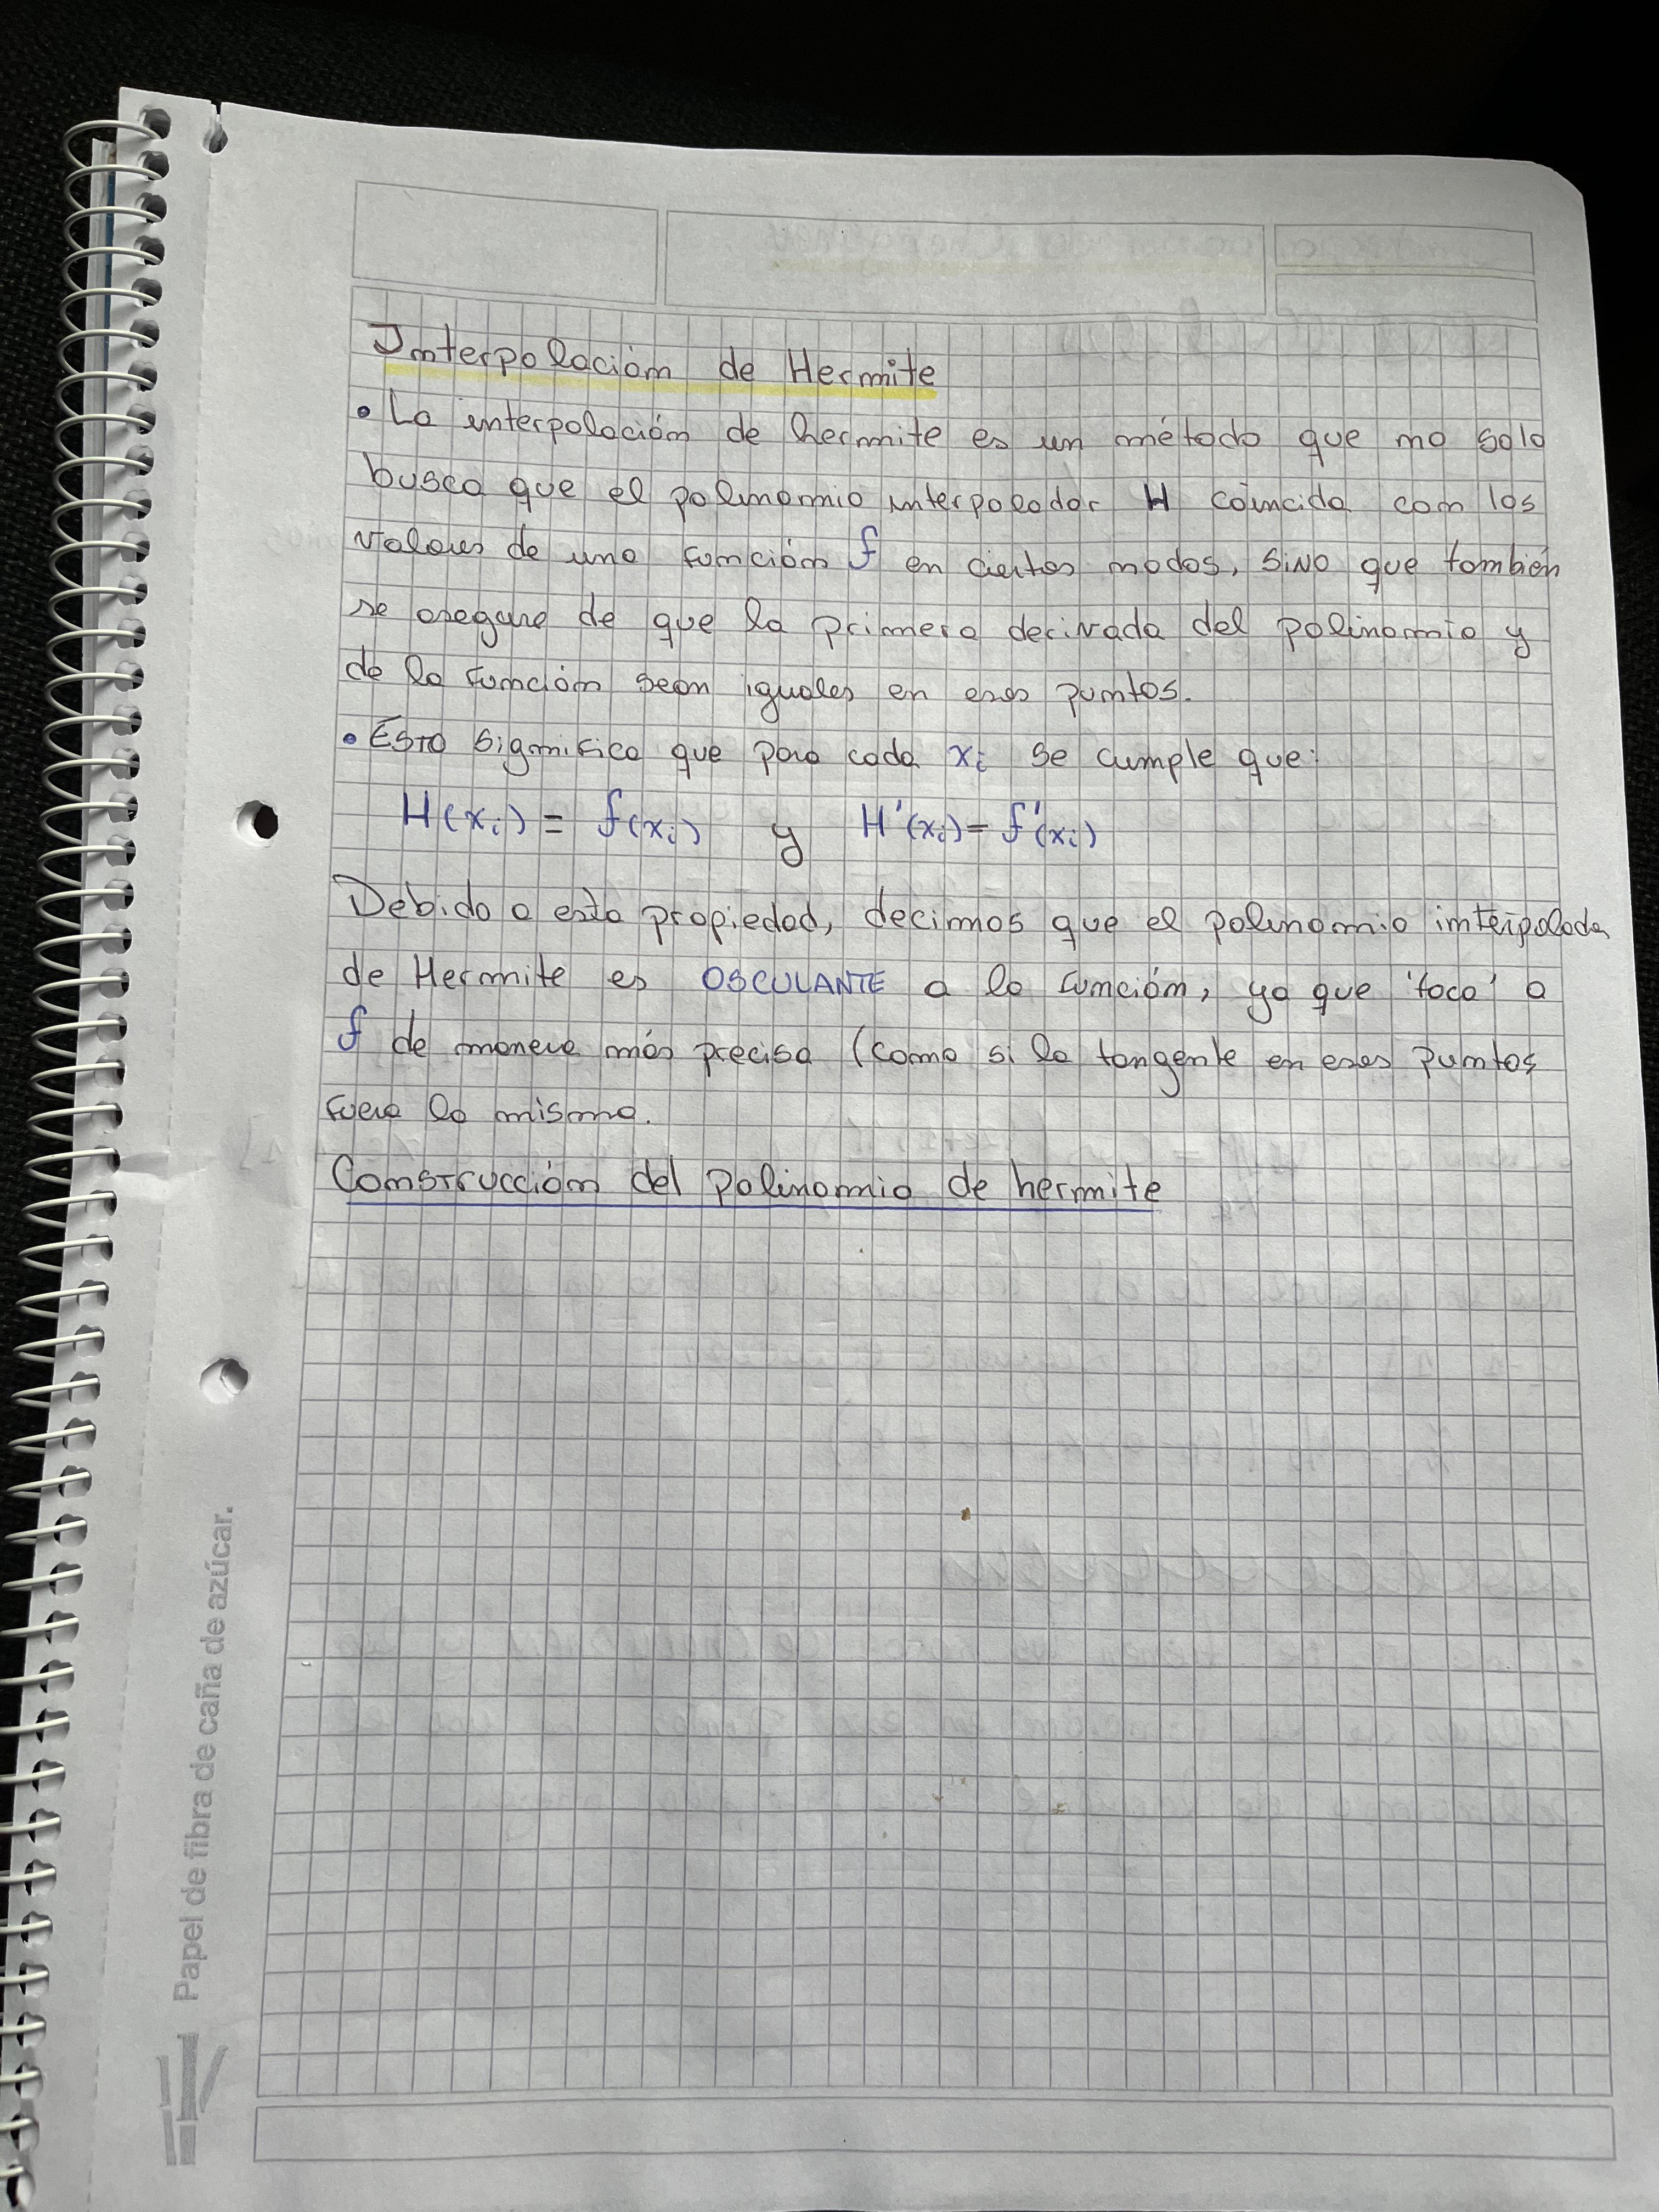 Interpolación de Hermite
• La interpolación de hermite es un método que no solo
busca que el polinomio interpolador H coincida con los
valores de una función f en ciertos nodos, sino que también
se asegura de que la primera derivada del polinomio y
de la función sean iguales en esos puntos.
• Esto significa que para cada xi se cumple que:
H(xi) = f(xi) y H'(xi) = f'(xi)
Debido a esta propiedad, decimos que el polinomio interpolador
de Hermite es OSCULANTE a la función, ya que 'toca' a
f de manera más precisa (como si la tangente en esos puntos
fuera la misma.
Construcción del polinomio de hermite
Papel de fibra de caña de azúcar.